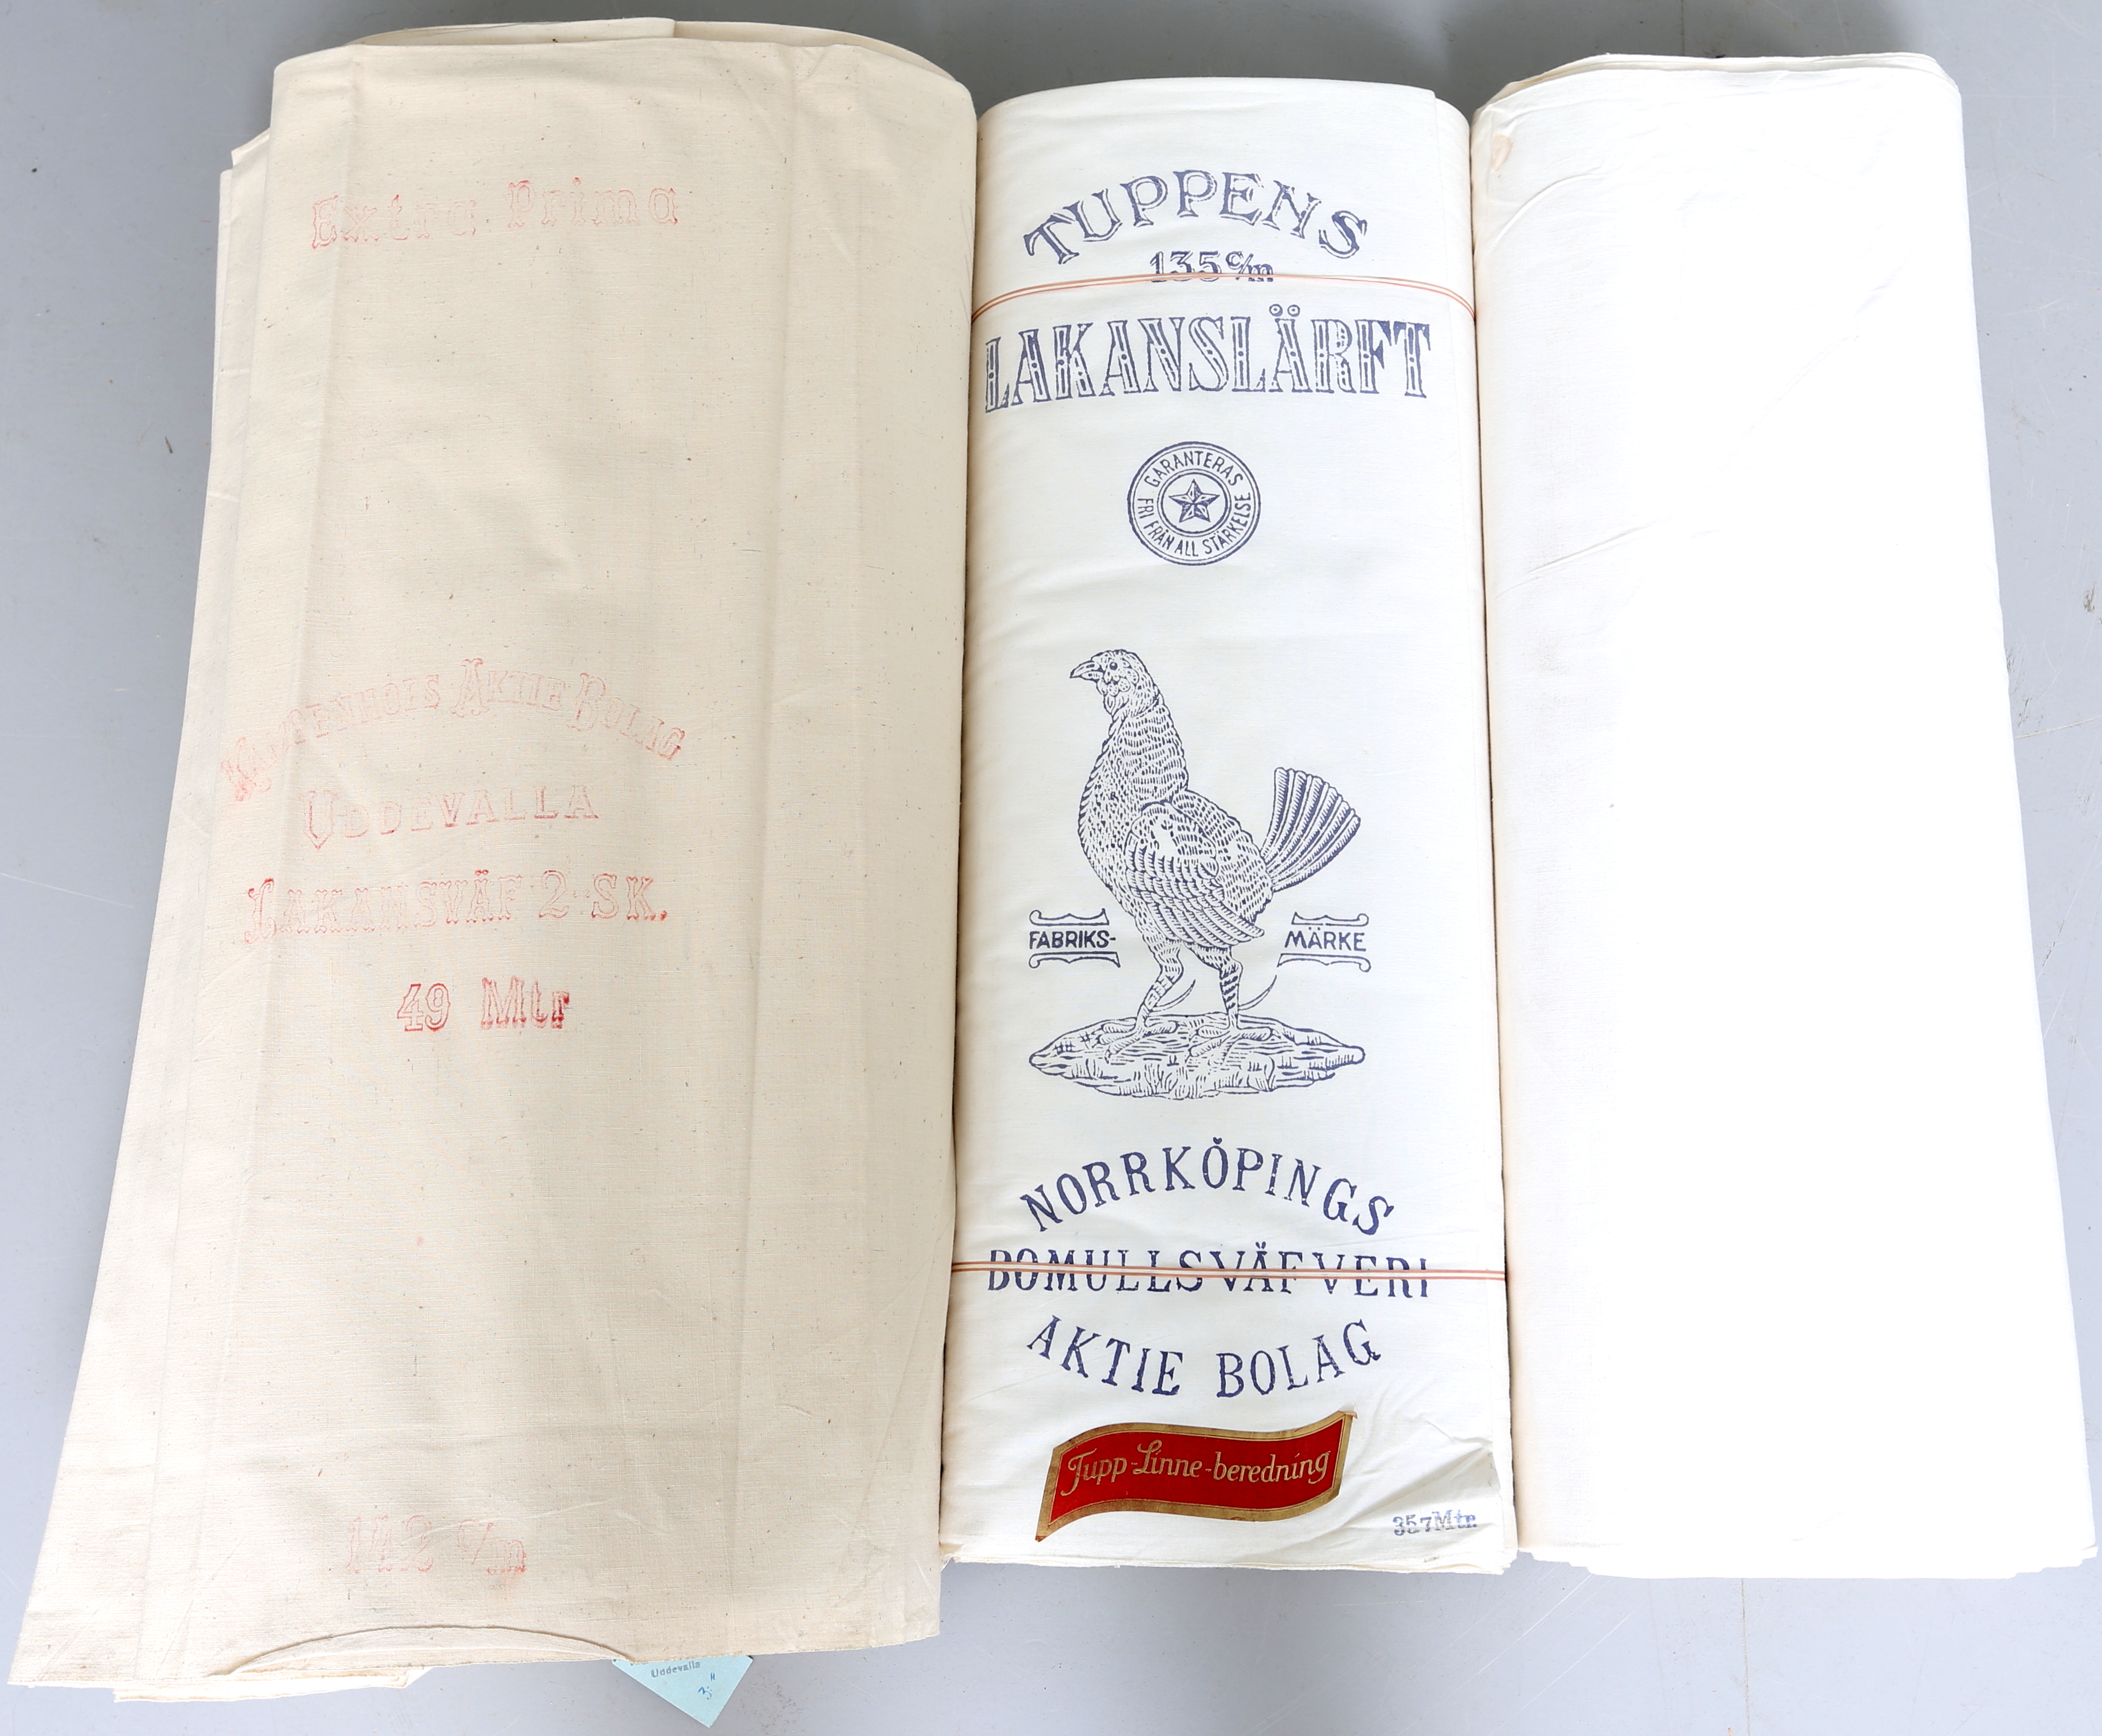 Extra Prima
KAMPENHOFS AKTIE BOLAG
UDDEVALLA
LAKANSVÄF 2 SK.
49 Mtr
142 c/m
Uddevalla
3:"
TUPPENS
135 c/m
LAKANSLÄRFT
GARANTERAS
FRI FRÅN ALL STÄRKELSE
FABRIKS-
MÄRKE
NORRKÖPINGS
BOMULLSVÄFVERI
AKTIE BOLAG
Tupp-Linne-beredning
357 Mtr